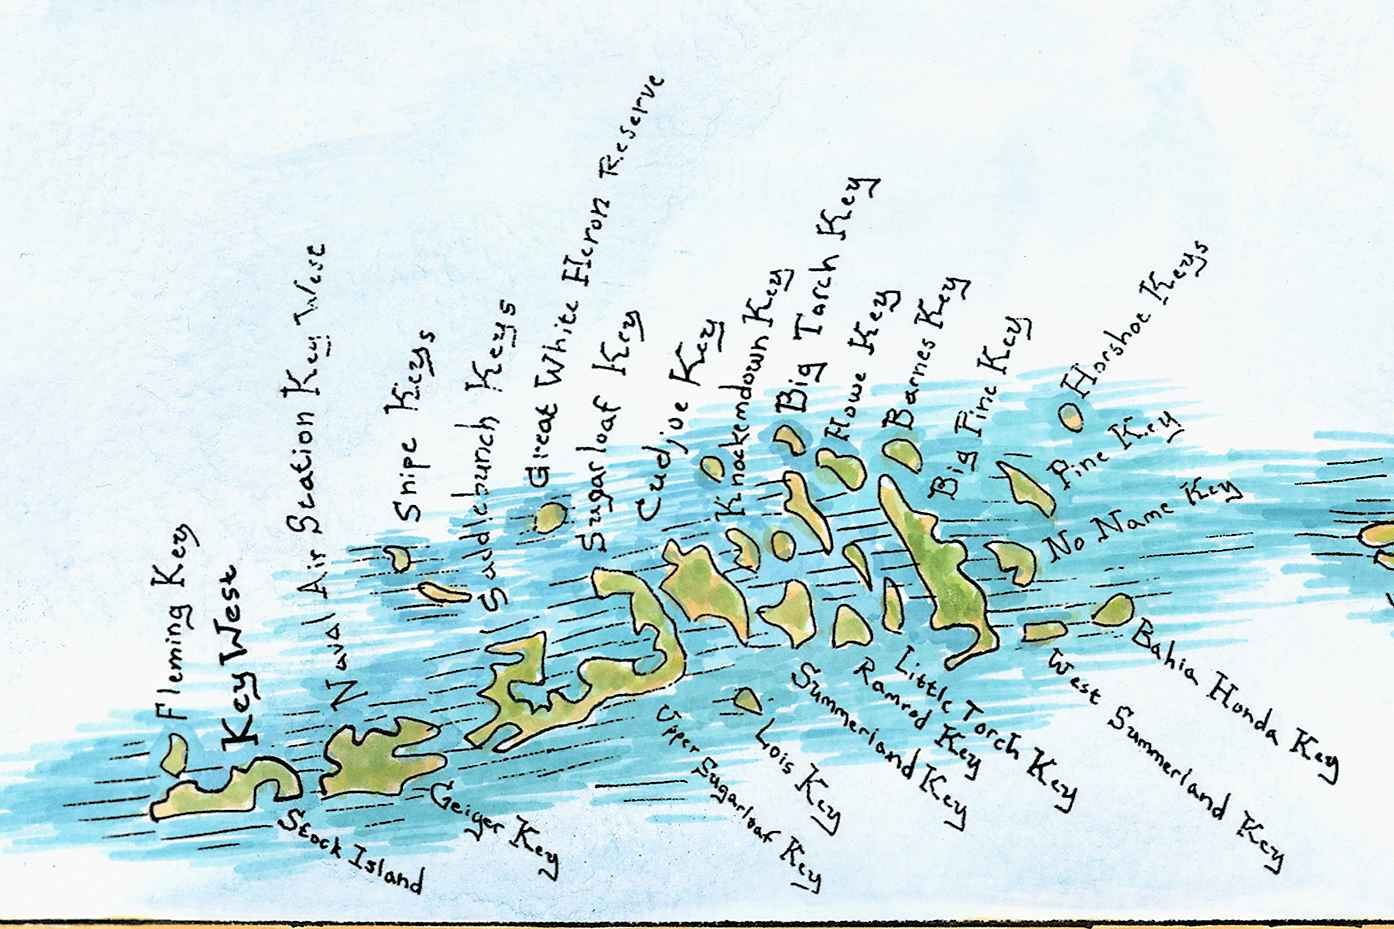 Fleming Key
Key West
Naval Air Station Key West
Snipe Keys
Saddlebunch Keys
Great White Heron Reserve
Sugarloaf Key
Cudjoe Key
Knockemdown Key
Big Torch Key
Howe Key
Barnes Key
Big Pine Key
Horshoe Keys
Pine Key
No Name Key
Bahia Honda Key
West Summerland Key
Little Torch Key
Ramrod Key
Summerland Key
Lois Key
Upper Sugarloaf Key
Geiger Key
Stock Island